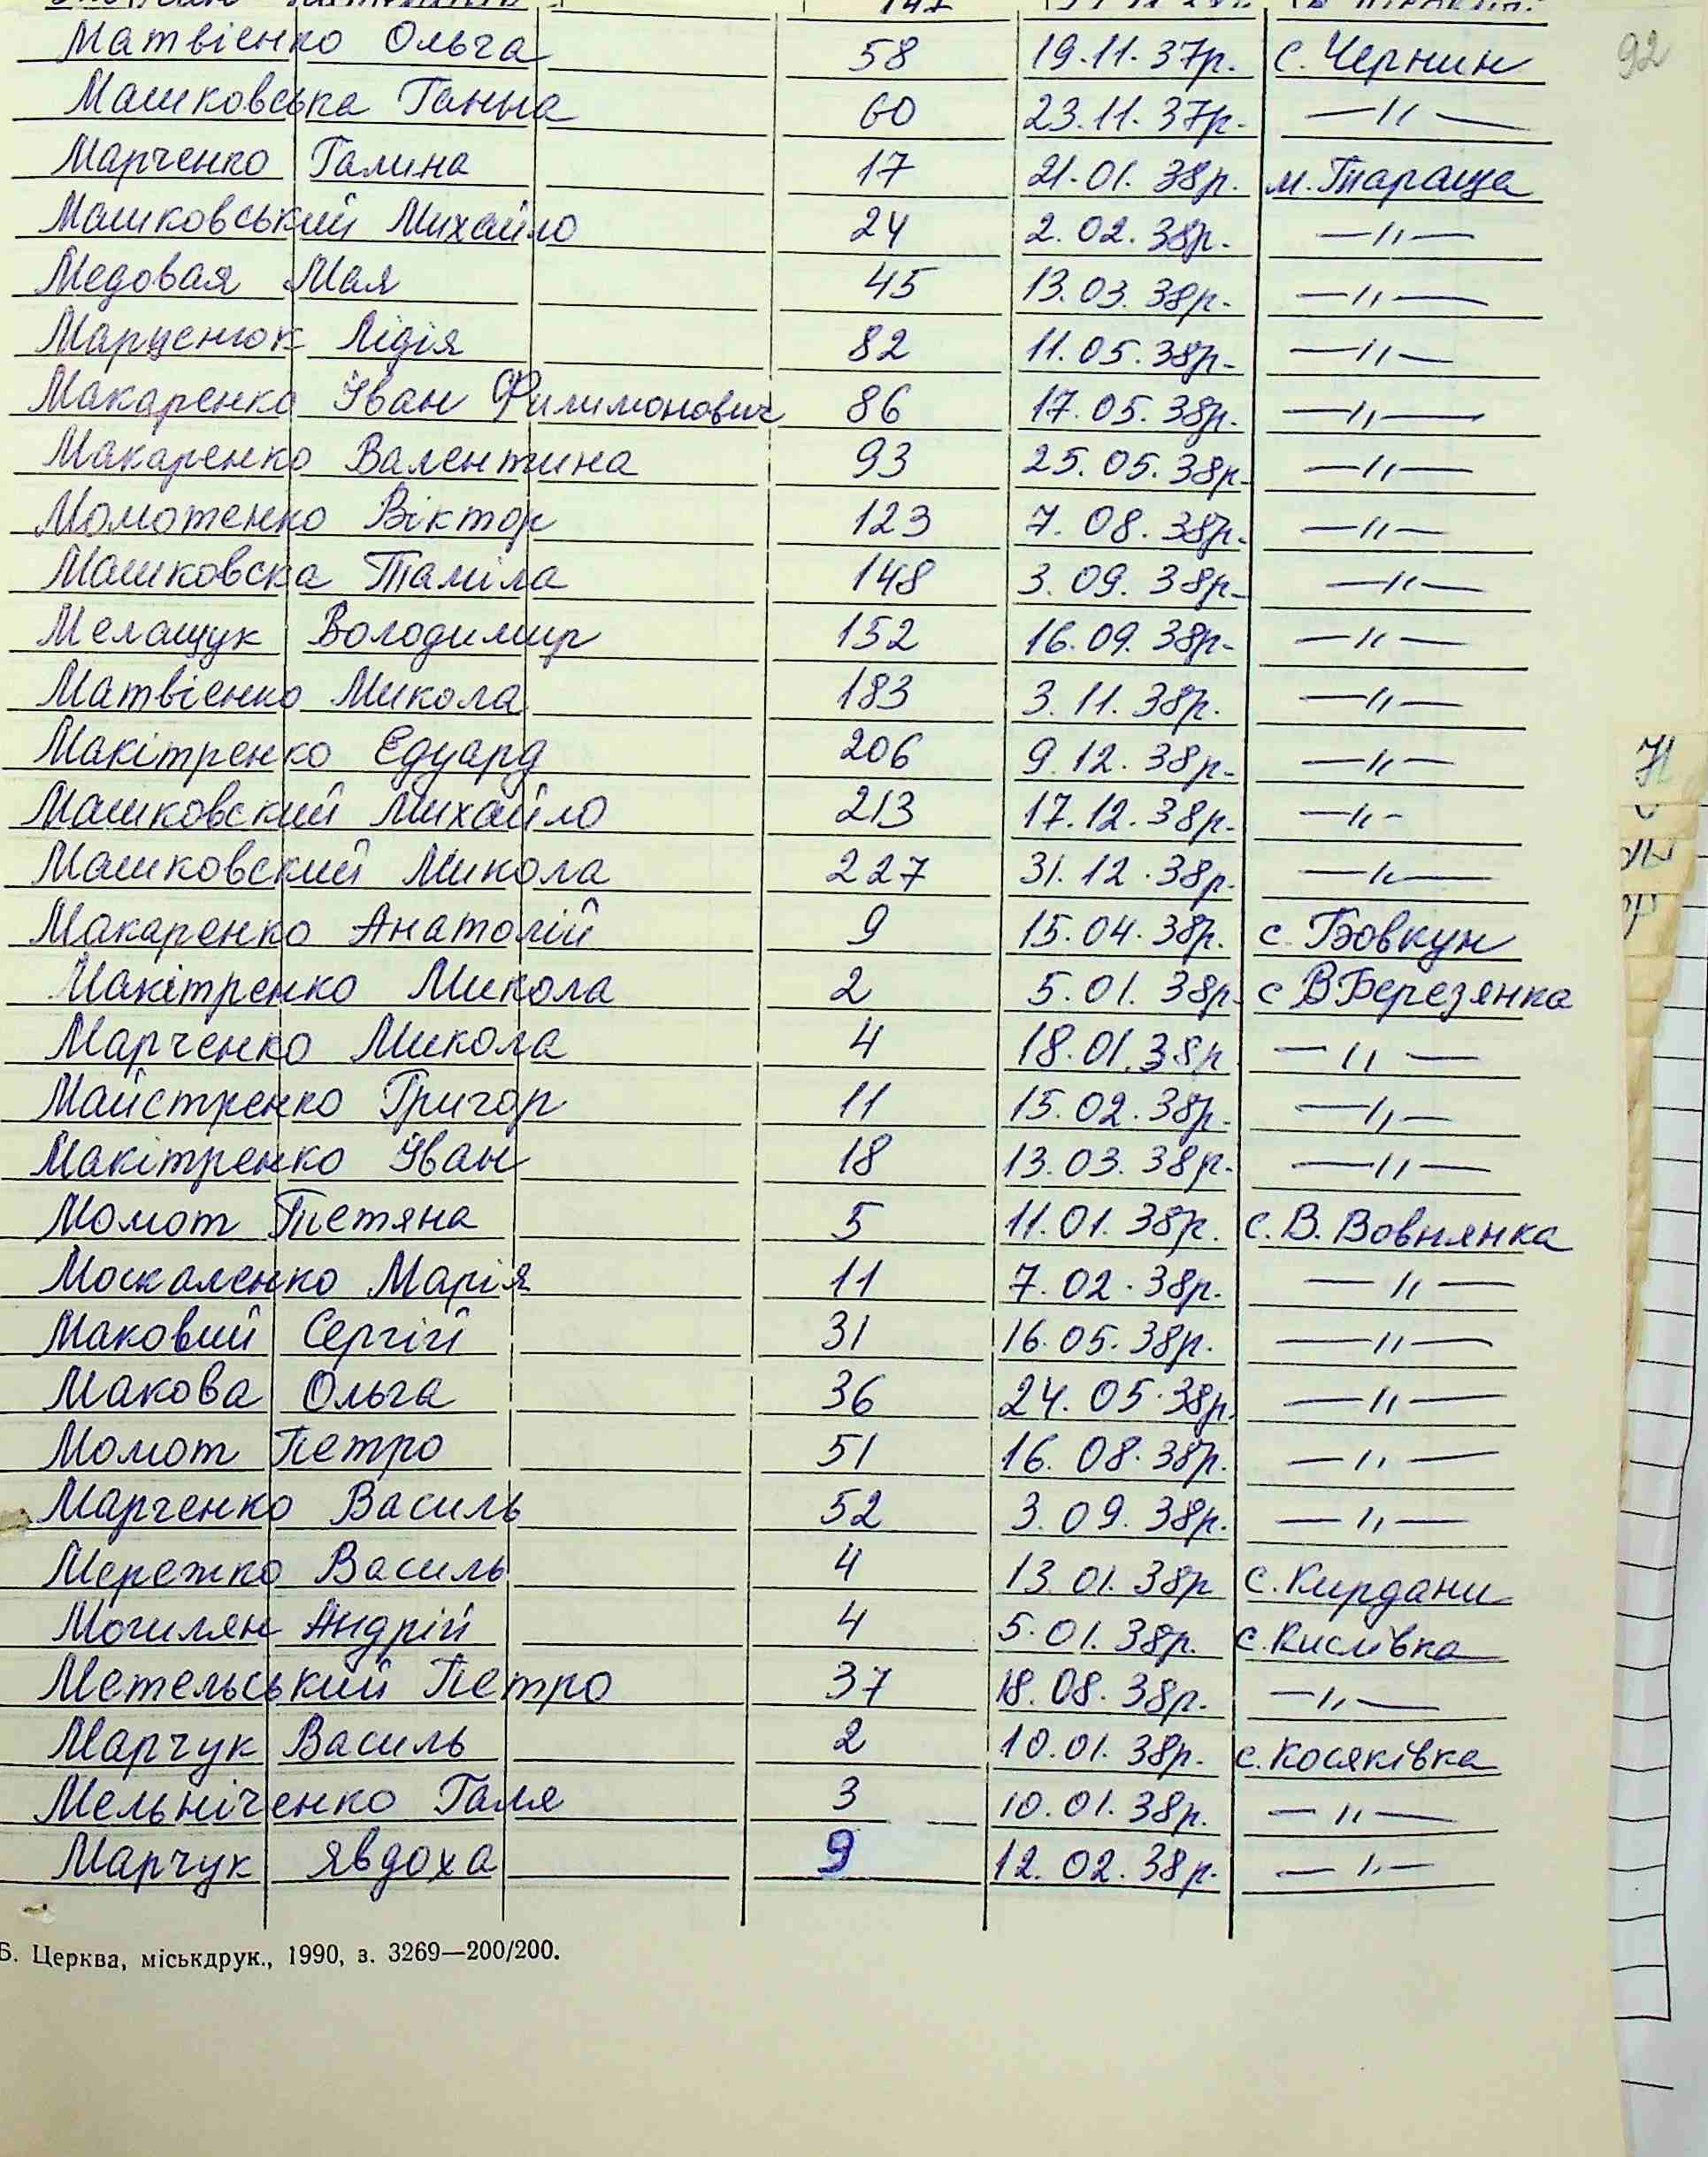 92
Матвієнко Ольга 58 19.11.37р. с. Чернин
Машковська Ганна 60 23.11.37р. —〃—
Марченко Галина 17 21.01.38р. м. Тараща
Машковський Михайло 24 2.02.38р. —〃—
Медовая Мая 45 13.03.38р. —〃—
Марценюк Лідія 82 11.05.38р. —〃—
Макаренко Іван Филимонович 86 17.05.38р. —〃—
Макаренко Валентина 93 25.05.38р. —〃—
Момотенко Віктор 123 7.08.38р. —〃—
Машковска Таміла 148 3.09.38р. —〃—
Мелащук Володимир 152 16.09.38р. —〃—
Матвієнко Микола 183 3.11.38р. —〃—
Макітренко Едуард 206 9.12.38р. —〃—
Машковский Михайло 213 17.12.38р. —〃—
Машковский Микола 227 31.12.38р. —〃—
Макаренко Анатолій 9 15.04.38р. с. Бовкун
Макітренко Микола 2 5.01.38р. с В Березянка
Марченко Микола 4 18.01.38р —〃—
Майстренко Григор 11 15.02.38р. —〃—
Макітренко Іван 18 13.03.38р. —〃—
Момот Тетяна 5 11.01.38р. с. В. Вовнянка
Москаленко Марія 11 7.02.38р. —〃—
Маковий Сергій 31 16.05.38р. —〃—
Макова Ольга 36 24.05.38р. —〃—
Момот Петро 51 16.08.38р. —〃—
Марченко Василь 52 3.09.38р. —〃—
Мережко Василь 4 13.01.38р с. Кирдани
Могилян Андрій 4 5.01.38р. с. Кислівка
Метельський Петро 37 18.08.38р. —〃—
Марчук Василь 2 10.01.38р. с. Косяківка
Мельніченко Галя 3 10.01.38р. —〃—
Марчук Явдоха 9 12.02.38р. —〃—
Б. Церква, міськдрук., 1990, з. 3269—200/200.